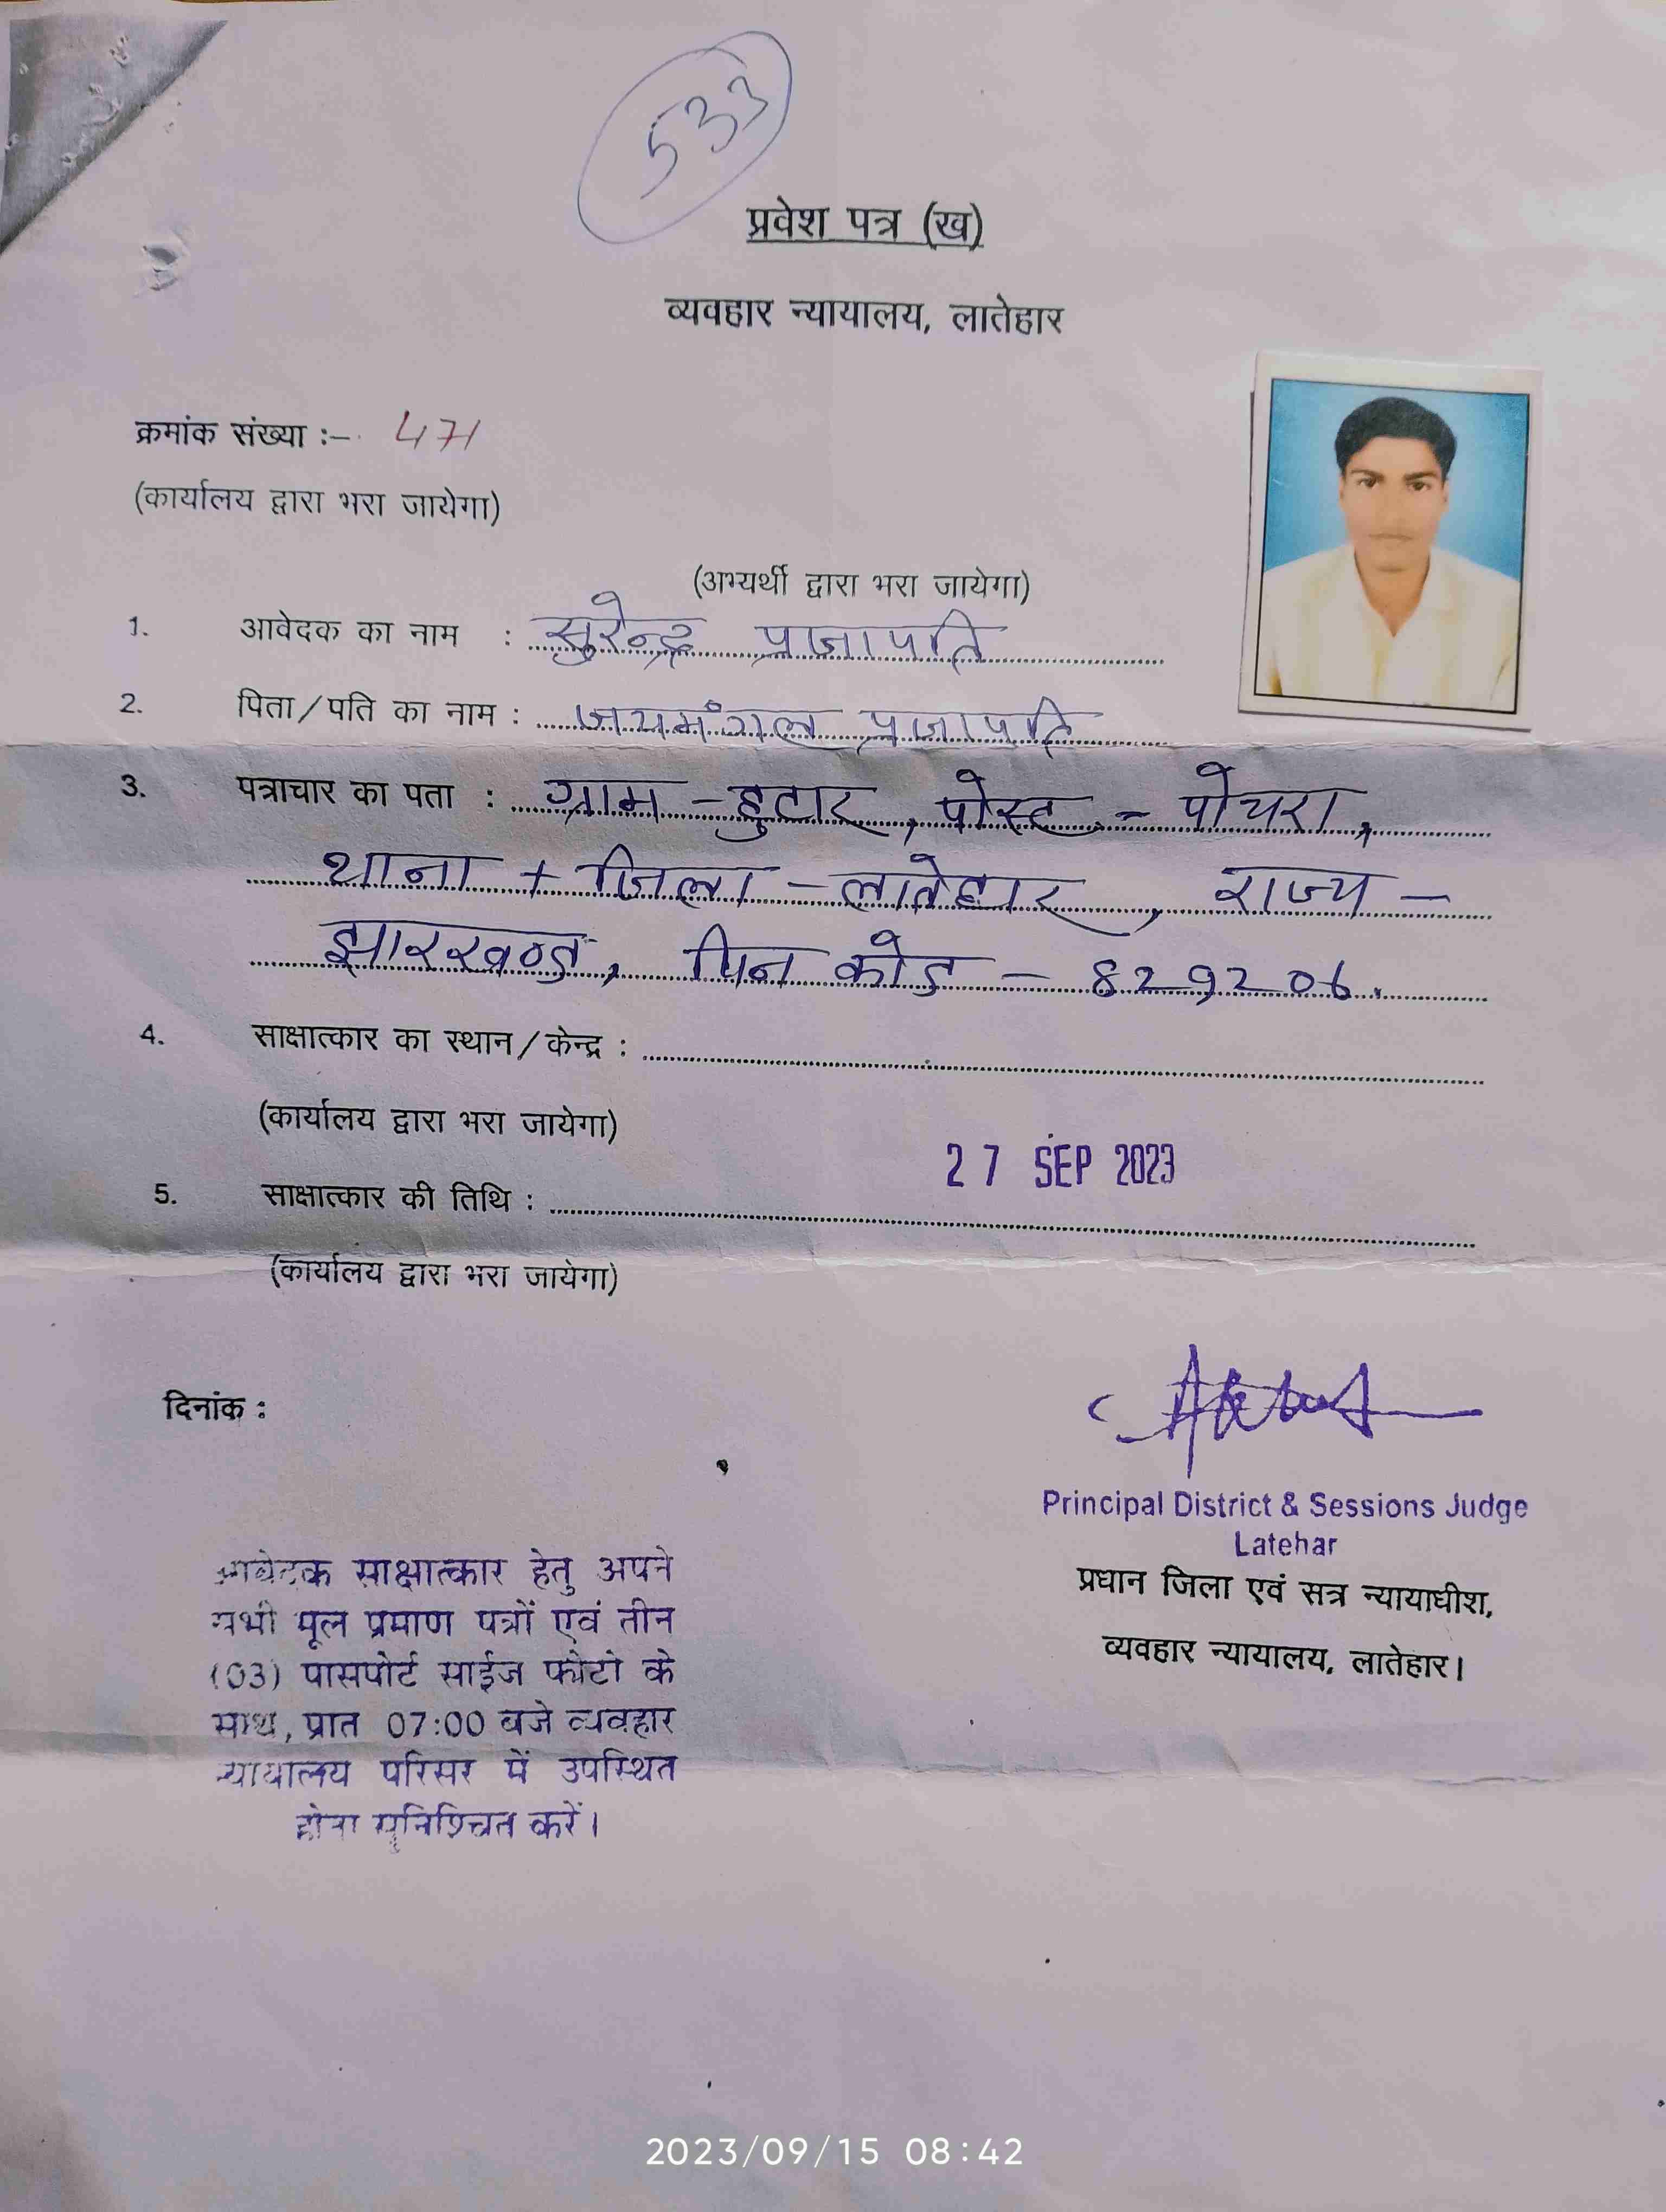 533
प्रवेश पत्र (ख)
व्यवहार न्यायालय, लातेहार
क्रमांक संख्या :- 471
(कार्यालय द्वारा भरा जायेगा)
(अभ्यर्थी द्वारा भरा जायेगा)
1. आवेदक का नाम : सुरेन्द्र प्रजापति
2. पिता/पति का नाम : जयमंगल प्रजापति
3. पत्राचार का पता : ग्राम - हुटार, पोस्ट - पोचरा,
थाना + जिला - लातेहार, राज्य -
झारखण्ड, पिन कोड - 829206.
4. साक्षात्कार का स्थान/केन्द्र :
(कार्यालय द्वारा भरा जायेगा)
27 SEP 2023
5. साक्षात्कार की तिथि :
(कार्यालय द्वारा भरा जायेगा)
दिनांक :
Principal District & Sessions Judge
Latehar
प्रधान जिला एवं सत्र न्यायाधीश,
व्यवहार न्यायालय, लातेहार।
आवेदक साक्षात्कार हेतु अपने
सभी मूल प्रमाण पत्रों एवं तीन
(03) पासपोर्ट साईज फोटो के
साथ, प्रात 07:00 बजे व्यवहार
न्यायालय परिसर में उपस्थित
होना सुनिश्चित करें।
2023/09/15 08:42